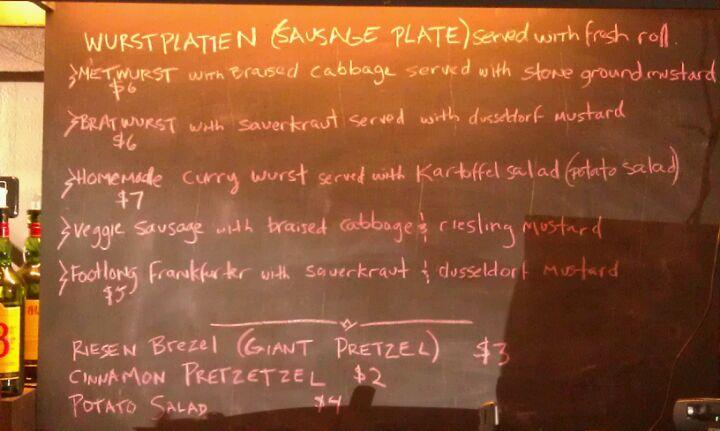 WURSTPLATTEN (SAUSAGE PLATE) served with fresh roll.
METWURST with Braised cabbage served with stone ground mustard
$6
BRATWURST with sauerkraut served with dusseldorf mustard
$6
Homemade curry wurst served with Kartoffel salad (potato salad)
$7
Veggie sausage with braised cabbage & riesling mustard
Footlong Frankfurter with sauerkraut & dusseldorf mustard
$5
RIESEN Brezel (GIANT PRETZEL) $3
CINNAMON PRETZETZEL $2
POTATO SALAD $4